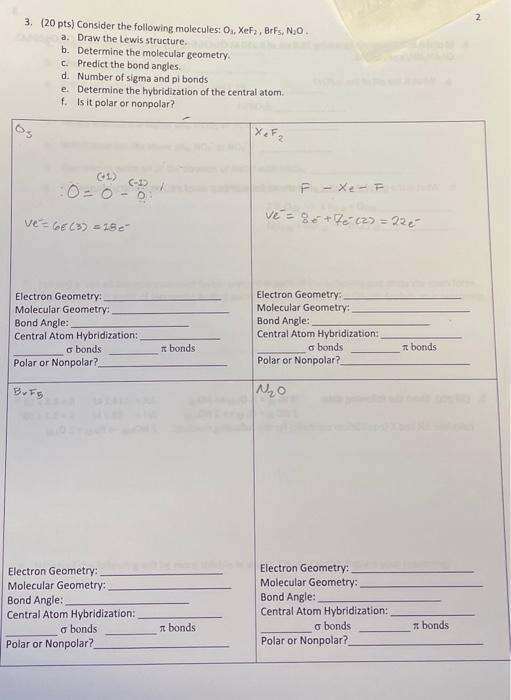 2
3. (20 pts) Consider the following molecules: O₃, XeF₂, BrF₅, N₂O.
a. Draw the Lewis structure.
b. Determine the molecular geometry.
c. Predict the bond angles.
d. Number of sigma and pi bonds
e. Determine the hybridization of the central atom.
f. Is it polar or nonpolar?
O₃
(+1) (-1)
:O=O-O:
Ve⁻=6E(3)=18e⁻
Electron Geometry:
Molecular Geometry:
Bond Angle:
Central Atom Hybridization:
σ bonds π bonds
Polar or Nonpolar?
XeF₂
F-Xe-F
Ve⁻=8e⁻+7e⁻(2)=22e⁻
Electron Geometry:
Molecular Geometry:
Bond Angle:
Central Atom Hybridization:
σ bonds π bonds
Polar or Nonpolar?
BrF5
Electron Geometry:
Molecular Geometry:
Bond Angle:
Central Atom Hybridization:
σ bonds π bonds
Polar or Nonpolar?
N₂O
Electron Geometry:
Molecular Geometry:
Bond Angle:
Central Atom Hybridization:
σ bonds π bonds
Polar or Nonpolar?